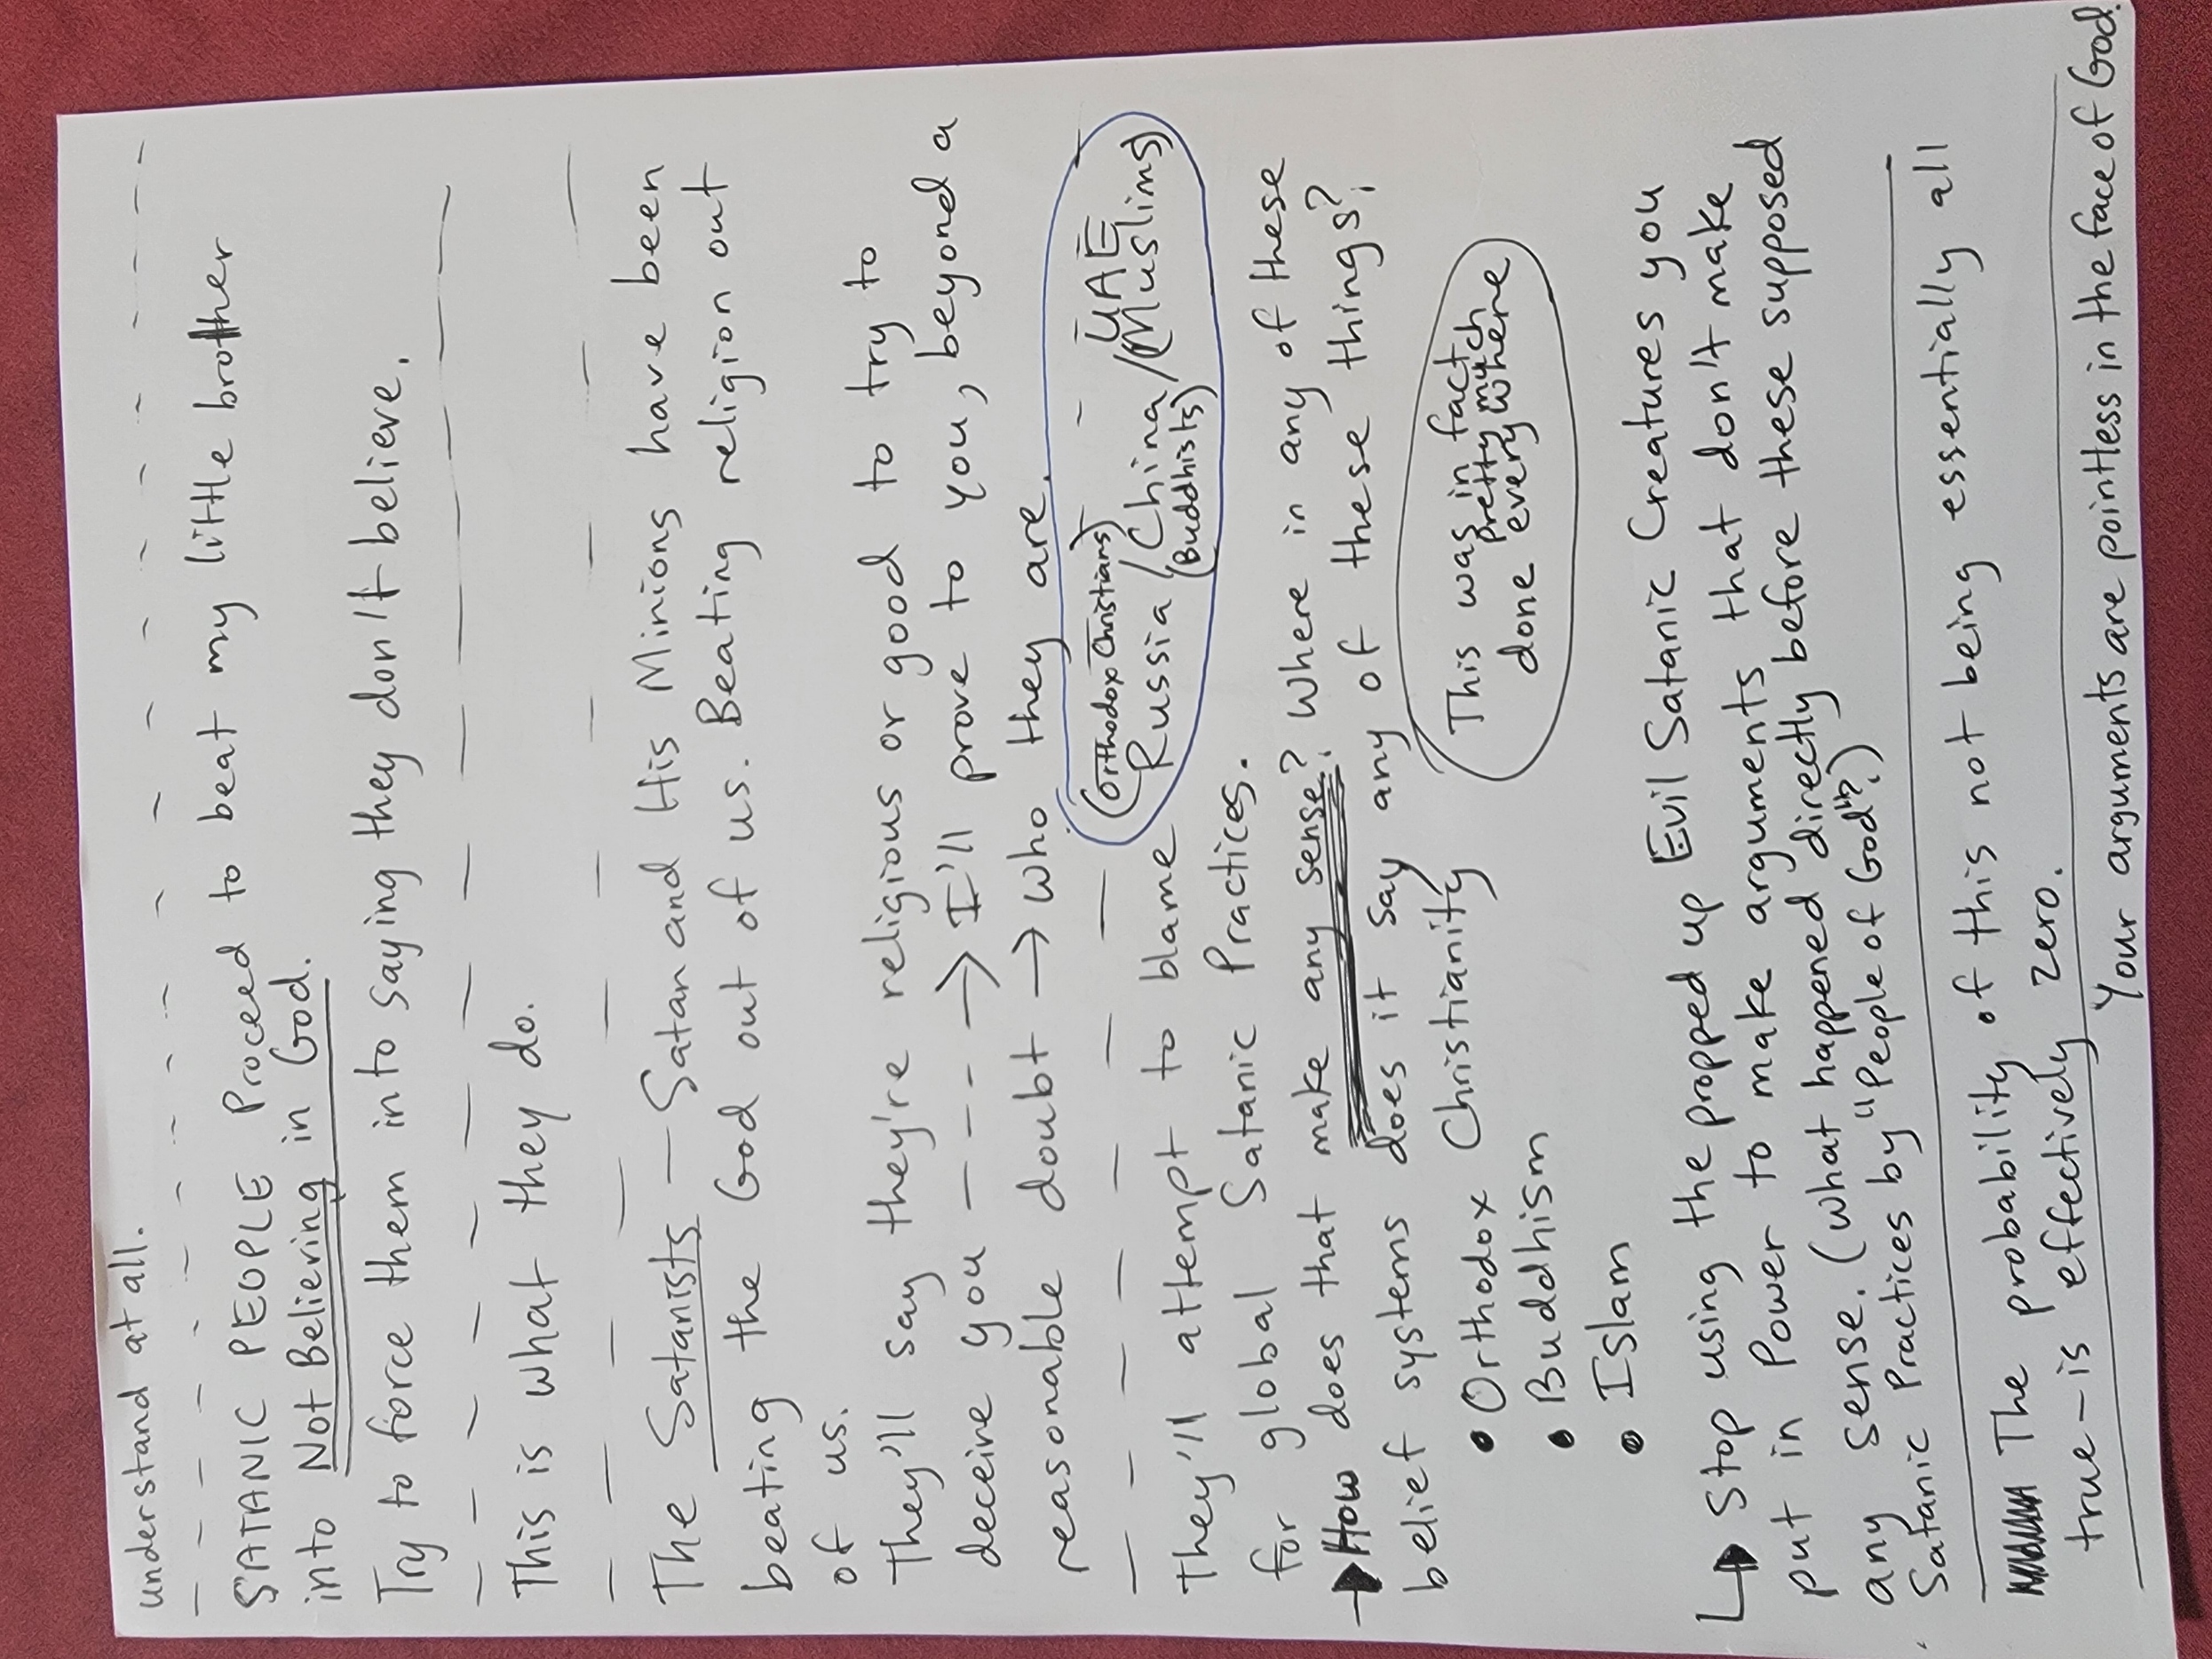 understand at all.
SATANIC PEOPLE Proceed to beat my little brother
into Not Believing in God.
Try to force them into saying they don't believe.
This is what they do.
The Satanists — Satan and His Minions have been
beating the God out of us. Beating religion out
of us.
They'll say they're religious or good to try to
deceive you ----> I'll prove to you, beyond a
reasonable doubt → who they are.
(Orthodox Christians) UAE
They'll attempt to blame Russia / China / (Muslims)
(Buddhists)
for global Satanic Practices.
→ How does that make any sense? Where in any of these
belief systems does it say any of these things?
• Orthodox Christianity
• Buddhism
• Islam
This was in fact
pretty much
done everywhere
↳ Stop using the propped up Evil Satanic Creatures you
put in Power to make arguments that don't make
any sense. (What happened directly before these supposed
Satanic Practices by "People of God"?)
The probability of this not being essentially all
true – is effectively zero.
Your arguments are pointless in the face of God.